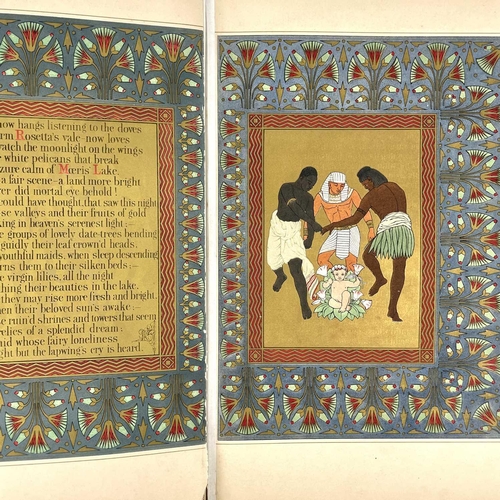 now hangs listening to the doves
rm Rosetta's vale now loves
atch the moonlight on the wings
white pelicans that break
zure calm of Mœris' Lake.
a fair scene - a land more bright
er did mortal eye behold!
ould have thought, that saw this night
se valleys and their fruits of gold
king in heaven's serenest light:-
e groups of lovely date-trees bending
guidly their leaf crown'd heads,
youthful maids, when sleep descending
rns them to their silken beds;-
e virgin lilies, all the night
hing their beauties in the lake,
they may rise more fresh and bright,
hen their beloved sun's awake:-
e ruin'd shrines and towers that seem
elics of a splendid dream:
id whose fairy loneliness
ght but the lapwing's cry is heard.